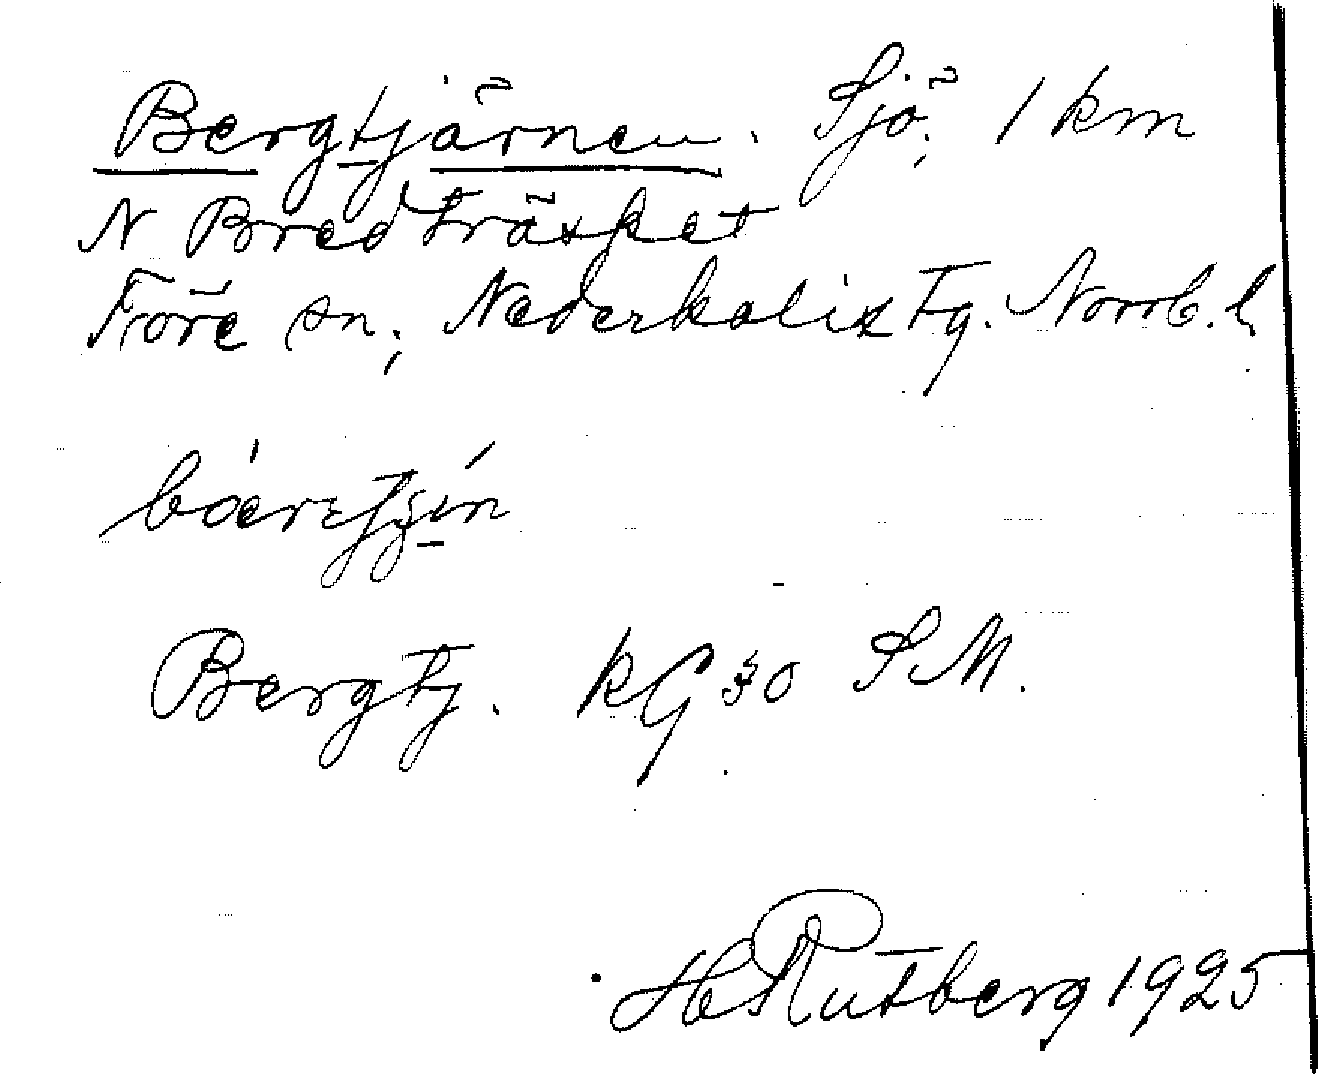 Bergtjärnen. Sjö; 1 km
N Bredträsket
Töre sn; Nederkalix tg. Norrb. l.
Bergtj. kG 30 SM.
H Rutberg 1925